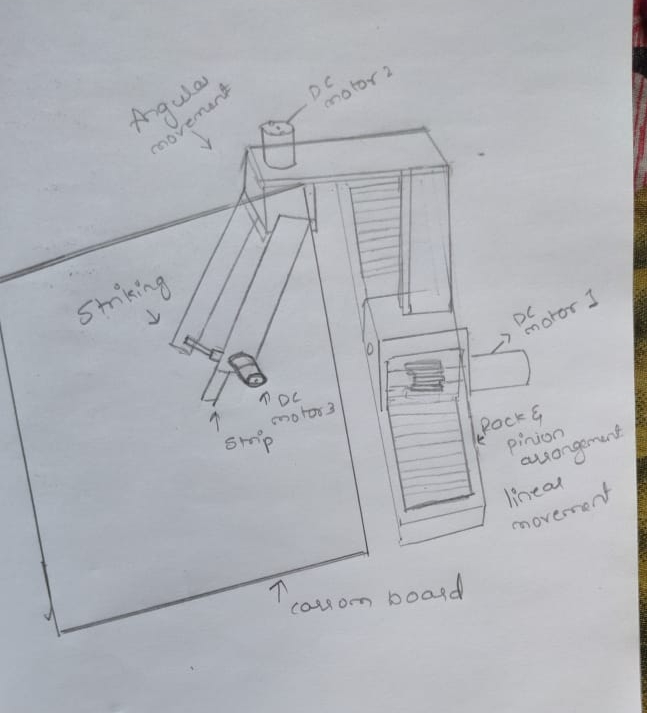 Angular
movement
DC
motor 2
Striking
DC
motor 1
DC
motor 3
Strip
Rack &
pinion
arrangement
linear
movement
carrom board